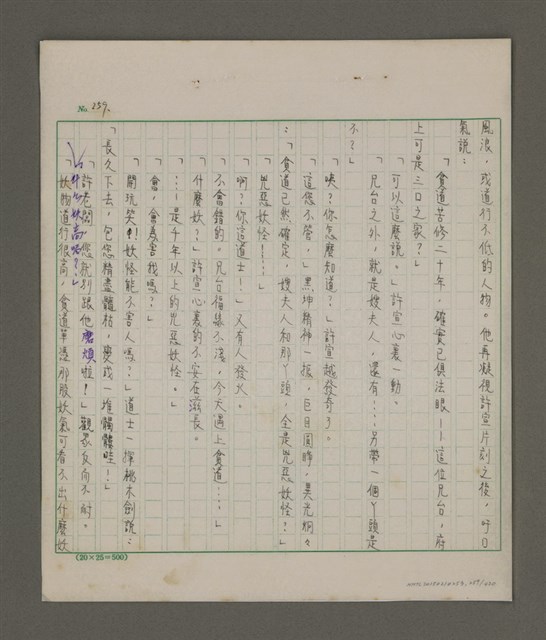 No. 259.
風浪,或道行不低的人物。他再凝視許宣片刻之後,吁口
氣說:
「貧道苦修二十年,確實已俱法眼——這位兄台,府
上可是三口之家?」
「可以這麼說。」許宣心裏一動。
「兄台之外,就是嫂夫人,還有……另帶一個丫頭是
不?」
「咦?你怎麼知道?」許宣越發奇了。
「這您不管,」黑坤精神一振,巨目圓睜,異光炯々
:「貧道已然確定,嫂夫人和那丫頭,全是兇惡妖怪?」
「兇惡妖怪!……」
「啊?你這道士!」又有人發火。
「不會錯的。兄台福緣不淺,今天遇上貧道……」
「什麼妖?」許宣心裏的不安在滋長。
「……是千年以上的兇惡妖怪。」
「會,會為害我嗎?」
「開玩笑!妖怪能不害人嗎?」道士一揮桃木劍說:
「長久下去,包您精盡髓枯,變成一堆髑髏哇!」
「許老闆,您就別跟他磨煩啦!」觀眾反向不耐。
「什麼妖高呢?」
「妖物道行很高,貧道單憑那股妖氣可看不出什麼妖
(20×25=500)